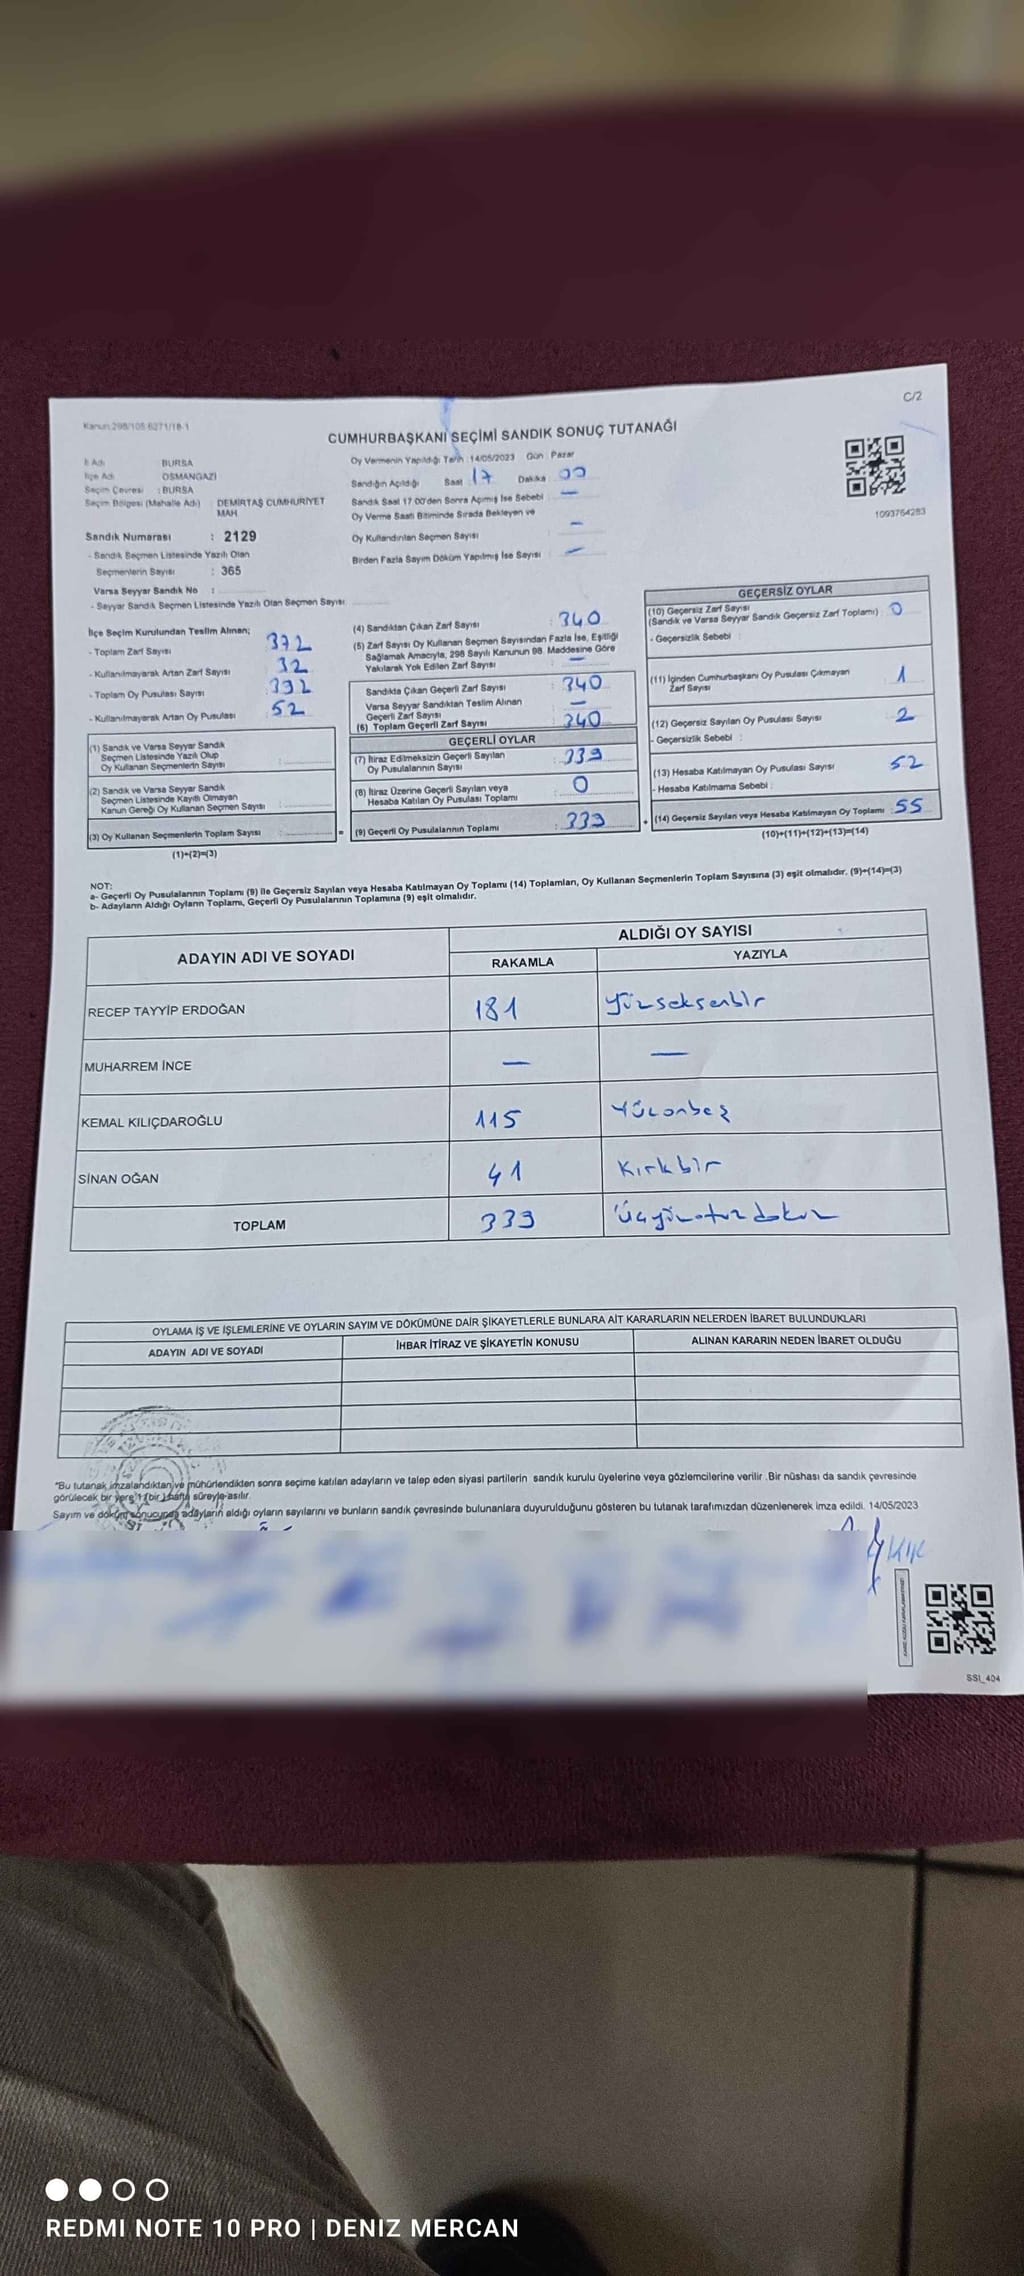 Kanun:298/105 6271/18-1
C/2
CUMHURBAŞKANI SEÇİMİ SANDIK SONUÇ TUTANAĞI
İl Adı BURSA
İlçe Adı OSMANGAZİ
Seçim Çevresi : BURSA
Seçim Bölgesi (Mahalle Adı) : DEMİRTAŞ CUMHURİYET
MAH
Sandık Numarası : 2129
- Sandık Seçmen Listesinde Yazılı Olan
Seçmenlerin Sayısı : 365
Varsa Seyyar Sandık No :
- Seyyar Sandık Seçmen Listesinde Yazılı Olan Seçmen Sayısı
Oy Vermenin Yapıldığı Tarih :14/05/2023 Gün : Pazar
Sandığın Açıldığı Saat 17 Dakika 00
Sandık Saat 17:00'den Sonra Açımış İse Sebebi : —
Oy Verme Saati Bitiminde Sırada Bekleyen ve
Oy Kullandırılan Seçmen Sayısı : —
Birden Fazla Sayım Döküm Yapılmış İse Sayısı : —
1093764283
İlçe Seçim Kurulundan Teslim Alınan;
- Toplam Zarf Sayısı : 372
- Kullanılmayarak Artan Zarf Sayısı : 32
- Toplam Oy Pusulası Sayısı : 392
- Kullanılmayarak Artan Oy Pusulası : 52
(1) Sandık ve Varsa Seyyar Sandık
Seçmen Listesinde Yazılı Olup
Oy Kullanan Seçmenlerin Sayısı :
(2) Sandık ve Varsa Seyyar Sandık
Seçmen Listesinde Kayıtlı Olmayan
Kanun Gereği Oy Kullanan Seçmen Sayısı :
(3) Oy Kullanan Seçmenlerin Toplam Sayısı :
(1)+(2)=(3)
(4) Sandıktan Çıkan Zarf Sayısı : 340
(5) Zarf Sayısı Oy Kullanan Seçmen Sayısından Fazla İse, Eşitliği
Sağlamak Amacıyla, 298 Sayılı Kanunun 98. Maddesine Göre
Yakılarak Yok Edilen Zarf Sayısı : —
Sandıkta Çıkan Geçerli Zarf Sayısı : 340
Varsa Seyyar Sandıktan Teslim Alınan
Geçerli Zarf Sayısı : —
(6) Toplam Geçerli Zarf Sayısı : 340
GEÇERLİ OYLAR
(7) İtiraz Edilmeksizin Geçerli Sayılan
Oy Pusulalarının Sayısı : 339
(8) İtiraz Üzerine Geçerli Sayılan veya
Hesaba Katılan Oy Pusulası Toplamı : 0
= (9) Geçerli Oy Pusulalarının Toplamı : 339
GEÇERSİZ OYLAR
(10) Geçersiz Zarf Sayısı
(Sandık ve Varsa Seyyar Sandık Geçersiz Zarf Toplamı) : 0
- Geçersizlik Sebebi :
(11) İçinden Cumhurbaşkanı Oy Pusulası Çıkmayan
Zarf Sayısı : 1
(12) Geçersiz Sayılan Oy Pusulası Sayısı : 2
- Geçersizlik Sebebi :
(13) Hesaba Katılmayan Oy Pusulası Sayısı : 52
- Hesaba Katılmama Sebebi :
+ (14) Geçersiz Sayılan veya Hesaba Katılmayan Oy Toplamı : 55
(10)+(11)+(12)+(13)=(14)
NOT:
a- Geçerli Oy Pusulalarının Toplamı (9) ile Geçersiz Sayılan veya Hesaba Katılmayan Oy Toplamı (14) Toplamları, Oy Kullanan Seçmenlerin Toplam Sayısına (3) eşit olmalıdır. (9)+(14)=(3)
b- Adayların Aldığı Oyların Toplamı, Geçerli Oy Pusulalarının Toplamına (9) eşit olmalıdır.
ADAYIN ADI VE SOYADI ALDIĞI OY SAYISI
RAKAMLA YAZIYLA
RECEP TAYYİP ERDOĞAN 181 Yüzseksenbir
MUHARREM İNCE — —
KEMAL KILIÇDAROĞLU 115 Yüzonbeş
SİNAN OĞAN 41 Kırkbir
TOPLAM 339 Üçyüzotuzdokuz
OYLAMA İŞ VE İŞLEMLERİNE VE OYLARIN SAYIM VE DÖKÜMÜNE DAİR ŞİKAYETLERLE BUNLARA AİT KARARLARIN NELERDEN İBARET BULUNDUKLARI
ADAYIN ADI VE SOYADI İHBAR İTİRAZ VE ŞİKAYETİN KONUSU ALINAN KARARIN NEDEN İBARET OLDUĞU
*Bu tutanak imzalandıktan ve mühürlendikten sonra seçime katılan adayların ve talep eden siyasi partilerin sandık kurulu üyelerine veya gözlemcilerine verilir. Bir nüshası da sandık çevresinde
görülecek bir yere 1 (bir) hafta süreyle asılır.
Sayım ve döküm sonucunda adayların aldığı oyların sayılarını ve bunların sandık çevresinde bulunanlara duyurulduğunu gösteren bu tutanak tarafımızdan düzenlenerek imza edildi. 14/05/2023
SSI_404
REDMI NOTE 10 PRO | DENIZ MERCAN